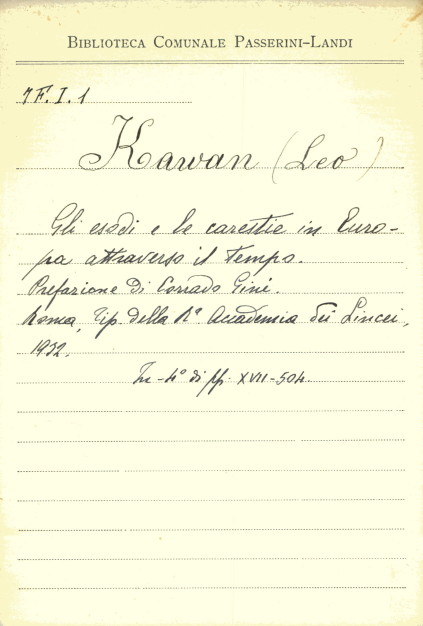 BIBLIOTECA COMUNALE PASSERINI-LANDI
7F. I. 1
Kawan (Leo)
Gli esodi e le carestie in Euro-
pa attraverso il tempo.
Prefazione di Corrado Gini.
Roma, Tip. della Rª Accademia dei Lincei,
1932.
In-4º di pp. XVII-504